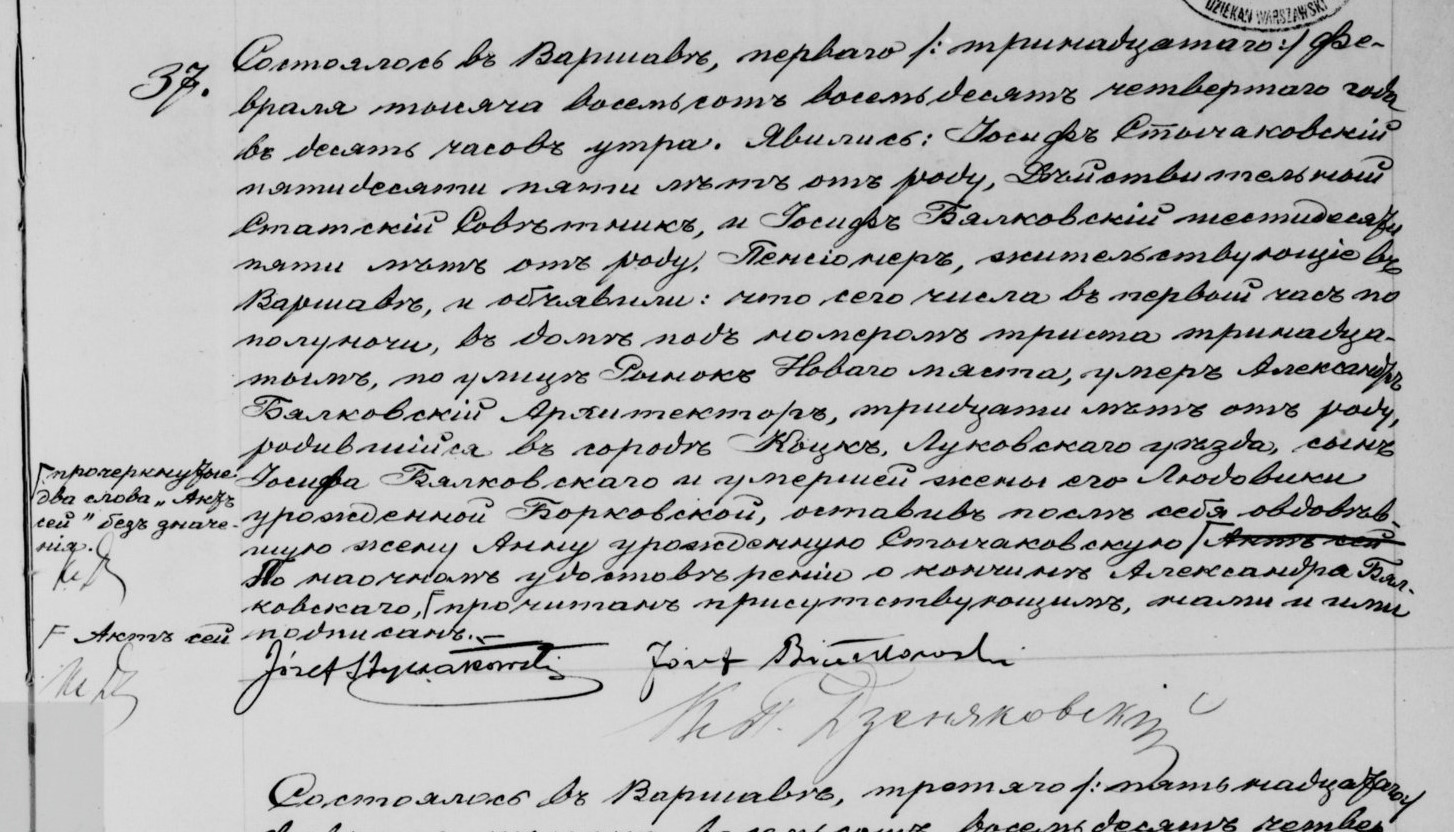 DZIEKAN WARSZAWSKI
37.
Состоялось въ Варшавѣ, перваго /: тринадцатаго :/ Фе-
враля тысяча восемьсотъ восемьдесятъ четвертаго года
въ десять часовъ утра. Явились: Іосифъ Стычаковскій
пятидесяти пяти лѣтъ отъ роду, Дѣйствительный
Статскій Совѣтникъ, и Іосифъ Бялковскій шестидесяти
пяти лѣтъ отъ роду, Пенсіонеръ, жительствующіе въ
Варшавѣ, и объявили: что сего числа въ первый часъ по
полуночи, въ домѣ подъ номеромъ триста тринадца-
тымъ, по улицѣ Рынокъ Новаго мяста, умеръ Александръ
Бялковскій Архитекторъ, тридцати лѣтъ отъ роду,
родившійся въ городѣ Коцкъ, Луковскаго уѣзда, сынъ
Іосифа Бялковскаго и умершей жены его Людовики
урожденной Борковской, оставивъ послѣ себя овдовѣв-
шую жену Анну урожденную Стычаковскую Актъ сей
По наочномъ удостовѣреніи о кончинѣ Александра Бял-
ковскаго, прочитанъ присутствующимъ, нами и ими
подписанъ.—
прочеркнутые
два слова „Актъ
сей" безъ значе-
нія.
Актъ сей
Józef Styczakowski Józef Białkowski
Дзеняковскій
Состоялось въ Варшавѣ, третяго /: пятьнадцатаго :/
восемьдесятъ четвер